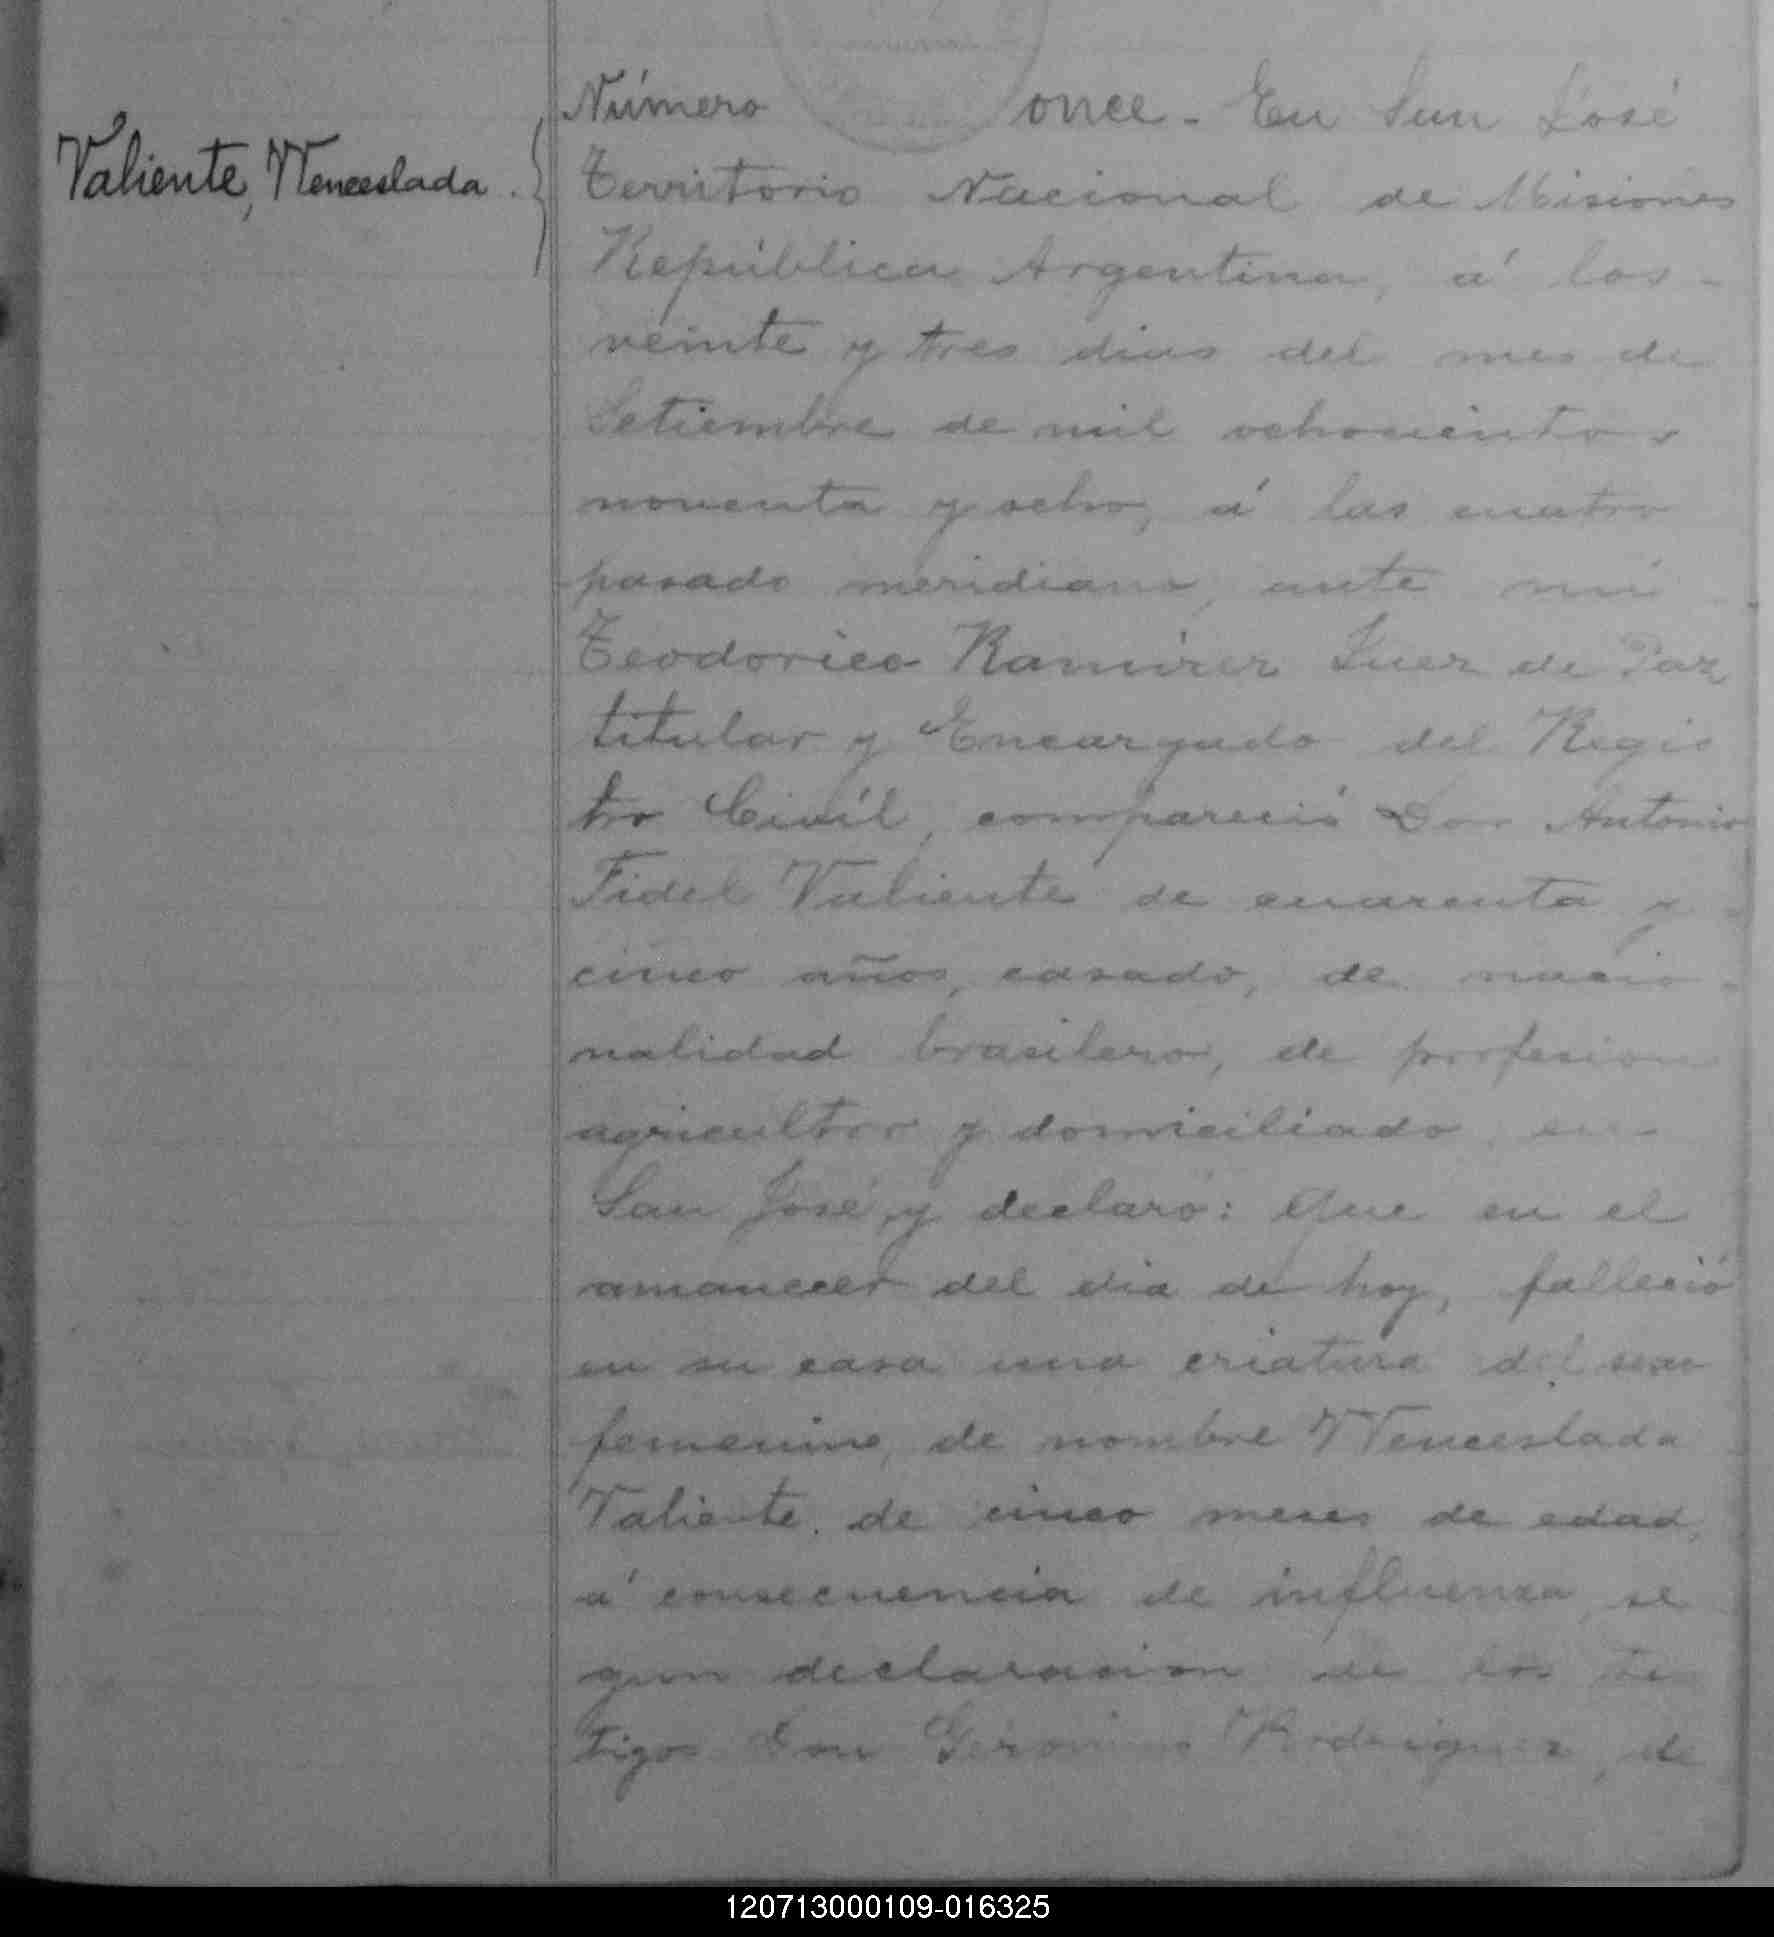 Valiente, Wenceslada.
Número once. En San José
Territorio Nacional de Misiones
República Argentina, á los
veinte y tres dias del mes de
Setiembre de mil ochocientos
noventa y ocho, á las cuatro
pasado meridiano, ante mi
Teodorico Ramirez Juez de Paz
titular y Encargado del Regis
tro Civíl, compareció Don Antonio
Fidel Valiente de cuarenta y
cinco años, casado, de nacio
nalidad brasilero, de profesion
agricultor y domiciliado en
San José, y declaró: Que en el
amanecer del dia de hoy, falleció
en su casa una criatura del sexo
femenino, de nombre Wenceslada
Valiente, de cinco meses de edad,
á consecuencia de influenza, se
gun declaracion de los tes
tigos Don Gerónimo Rodriguez, de
120713000109-016325